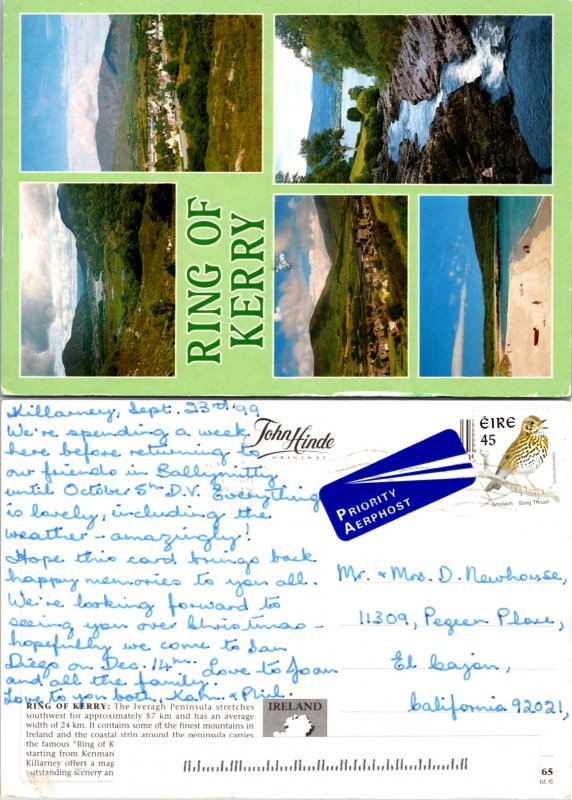 RING OF
KERRY
Killarney, Sept. 23rd '99
We're spending a week
here before returning to
our friends in Ballynitty
until October 5th D.V. Everything
is lovely, including the
weather - amazingly!
Hope this card brings back
happy memories to you all.
We're looking forward to
seeing you over Christmas -
hopefully we come to San
Diego on Dec. 14th. Love to Joan
and all the family.
Love to you both, & Phil.
John Hinde
ORIGINAL
PRIORITY
AERPHOST
ÉIRE
45
Smólach Song Thrush
Mr. & Mrs. D. Newhouse,
11309, Pegeen Place,
El Cajon,
California 92021,
RING OF KERRY: The Iveragh Peninsula stretches
southwest for approximately 57 km and has an average
width of 24 km. It contains some of the finest mountains in
Ireland and the coastal strip around the peninsula carries
the famous "Ring of K
starting from Kenmar
Killarney offers a mag
outstanding scenery an
IRELAND
65
td. ©